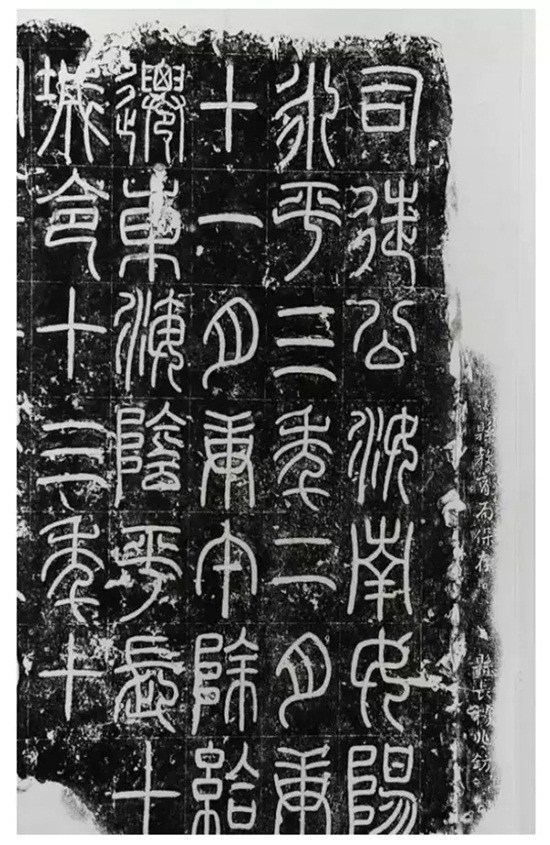 司徒公汝南女陽
永平三年二月庚
十一月庚午除給
遷東海陰平長十
城令十三年十